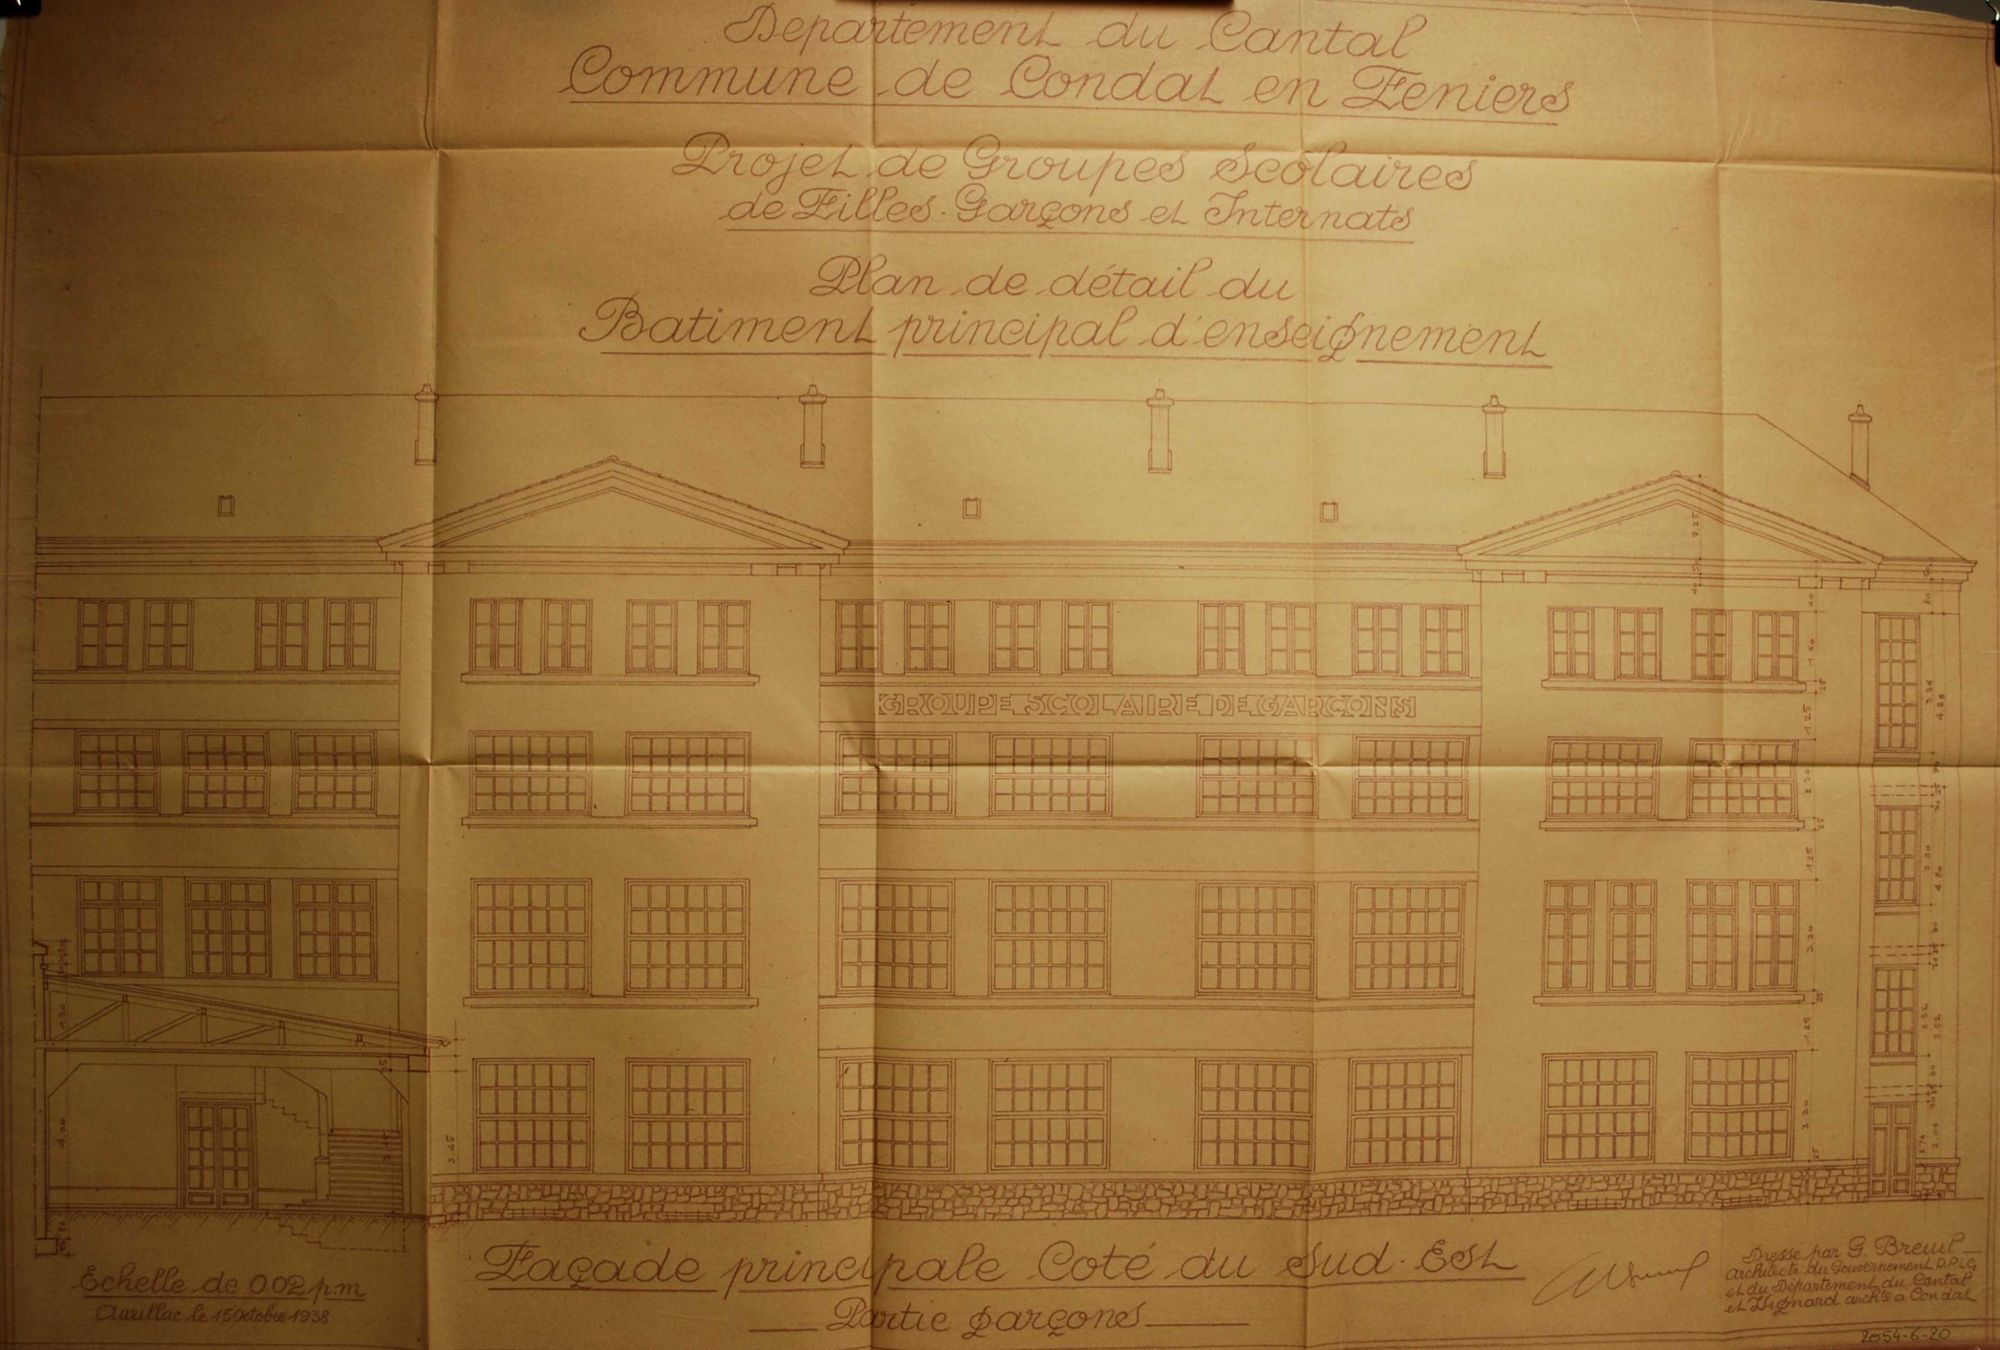 Departement du Cantal
Commune de Condat en Feniers
Projet de Groupes Scolaires
de Filles. Garçons et Internats
Plan de détail du
Batiment principal d'enseignement
GROUPE SCOLAIRE DE GARCONS
2.25
40
1.60
25
1.25
2.30
25
1.25
3.20
25
1.25
3.20
25
3.36
4.26
3.00
4.80
3.52
2.04
1.30
4.00
3.45
Façade principale Coté du Sud-Est
Partie garçons
Echelle de 0.02 p.m
Aurillac le 15 Octobre 1938
Dressé par G. Breuil
architecte du Gouvernement D.P.L.G.
et du Département du Cantal
et Vignard archte a Condat
2054-6-20